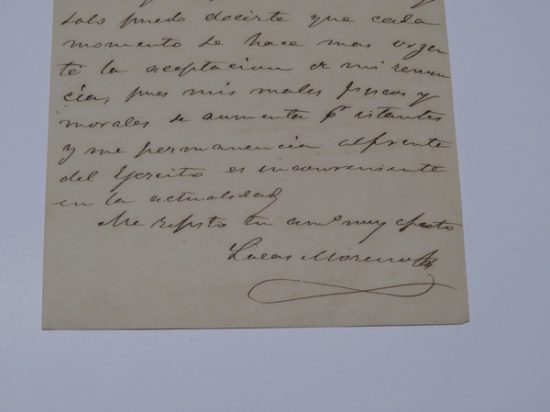 solo puedo decirte que cada
momento se hace mas urgen
te la aceptacion de mi renun
cia, pues mis males fisicos y
morales se aumentan istantes
y mi permanencia al frente
del Ejercito es inconveniente
en la actualidad
Me repito tu amo muy afecto
Lucas Moreno